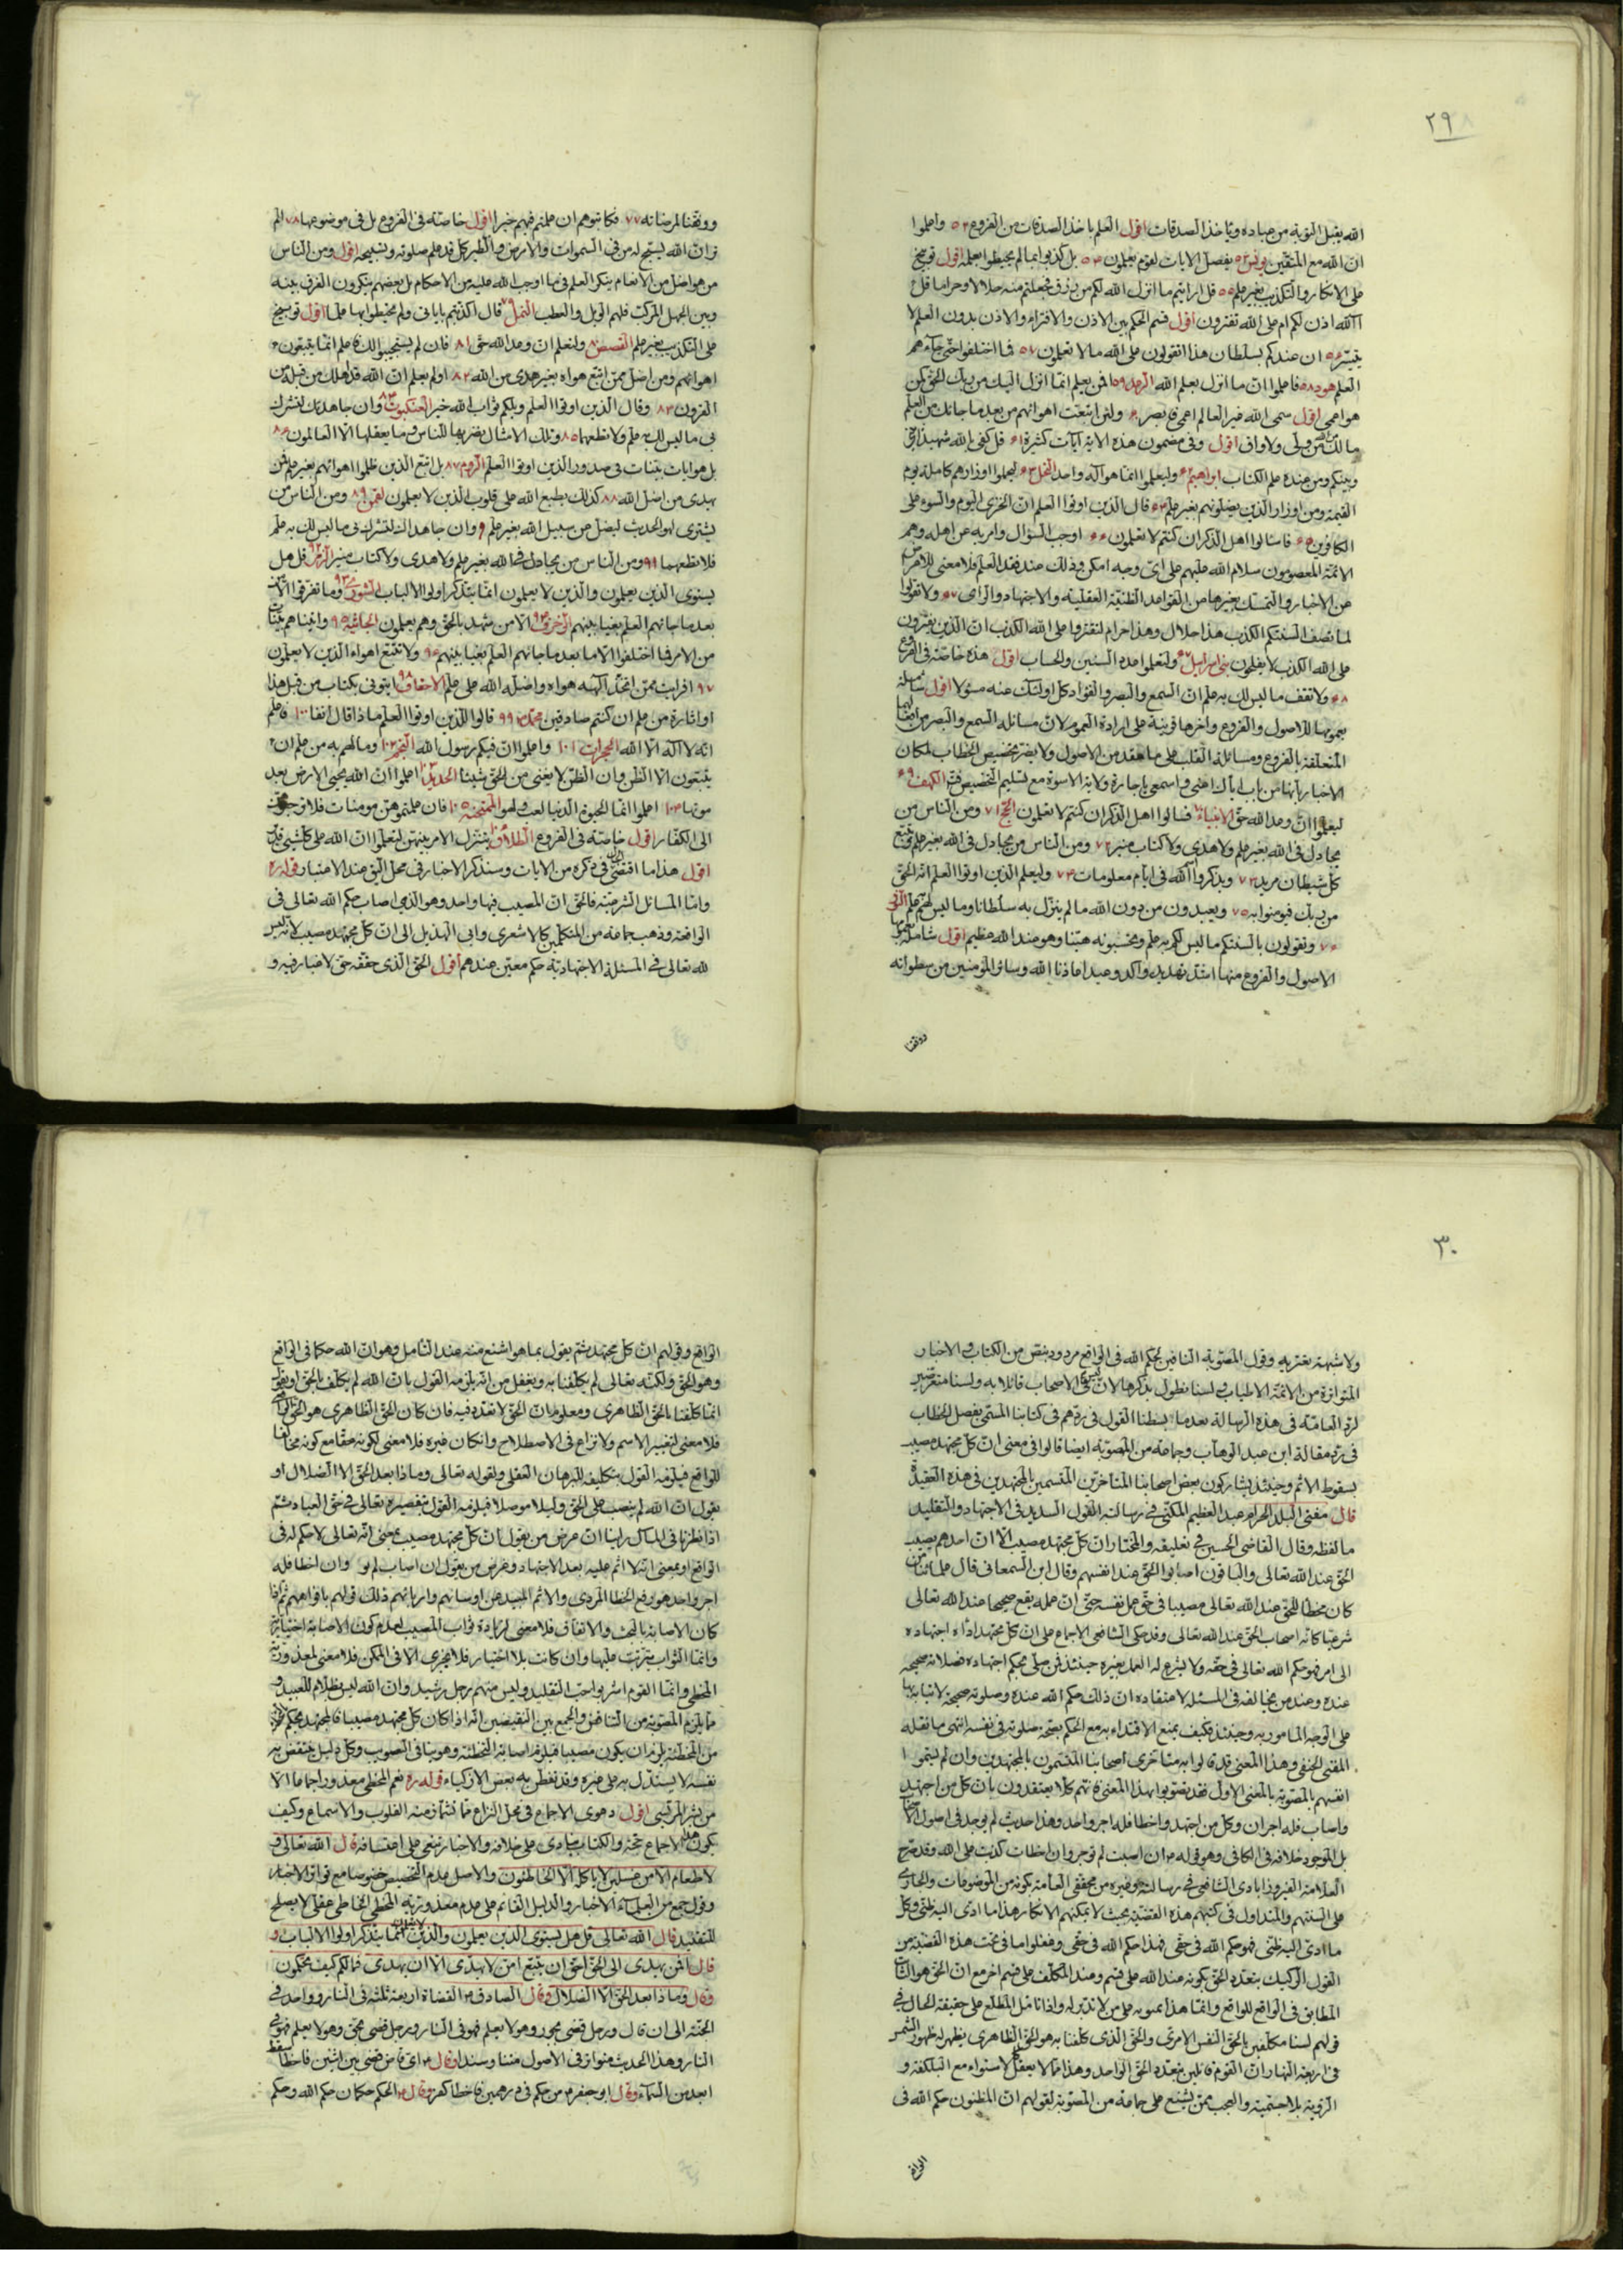 ٢٩
الله يقبل التوبة من عباده وياخذ الصدقات اقول العلم باخذ الصدقات من الفروع ٥٢ واعلموا
ان الله مع المتقين يونس ٥٣ يفصل الايات لقوم يعلمون ٥٤ بل كذبوا بما لم يحيطوا بعلمه اقول توبيخ
على الانكار والتكذيب بغير علم ٥٥ قل ارايتم ما انزل الله لكم من رزق فجعلتم منه حلالا وحراما قل
آلله اذن لكم ام على الله تفترون اقول قسم الحكم بين الاذن والافتراء والاذن بدون العلم لا
يتيسر ٥٦ ان عندكم بسلطان هذا اتقولون على الله ما لا تعلمون ٥٧ فما اختلفوا حتى جاءهم
العلم هود ٥٨ فاعلموا ان ما انزل بعلم الله الرعد ٥٩ افمن يعلم انما انزل اليك من ربك الحق كمن
هو اعمى اقول سمى الله غير العالم اعمى فابصر ولئن اتبعت اهوائهم من بعد ما جائك من العلم
ما لك من الله من ولى ولا واق اقول وفى مضمون هذه الاية آيات كثيرة قل كفى بالله شهيدا بينى
وبينكم ومن عنده علم الكتاب ابراهيم وليعلموا انما هو اله واحد النحل ليحملوا اوزارهم كاملة يوم
القيمة ومن اوزار الذين يضلونهم بغير علم قال الذين اوتوا العلم ان الخزى اليوم والسوء على
الكافرين فاسئلوا اهل الذكر ان كنتم لا تعلمون اوجب السؤال وامر به عن اهله وهم
الائمة المعصومون سلام الله عليهم على اى وجه امكن وذلك عند فقد العلم فلا معنى للاعراض
عن الاخبار والتمسك بغيرها من القواعد الظنية العقلية والاجتهاد والراى ولا تقولوا
لما تصف السنتكم الكذب هذا حلال وهذا حرام لتفتروا على الله الكذب ان الذين يفترون
على الله الكذب لا يفلحون بنى اسرائيل ولتعلموا عدد السنين والحساب اقول هذه خاصة فى الفروع
ولا تقف ما ليس لك به علم ان السمع والبصر والفؤاد كل اولئك كان عنه مسؤلا اقول شاملة
بعمومها للاصول والفروع واخرها قرينة على ارادة العموم لان مسائلة السمع والبصر من افعالهما
المتعلقة بالفروع ومسائلة القلب على ما عقد من الاصول ولا يضر تخصيص الخطاب لمكان
الاخبار بانها من باب اياك اعنى واسمعى يا جارة ولاية الاسوة مع تسليم التخصيص فيه الكهف
ليعلموا ان وعد الله حق الانبياء فسالوا اهل الذكر ان كنتم لا تعلمون الحج ٧١ ومن الناس من
يجادل فى الله بغير علم ولا هدى ولا كتاب منير ٧٢ ومن الناس من يجادل فى الله بغير علم ويتبع
كل شيطان مريد ٧٣ ويذكروا الله فى ايام معلومات ٧٤ وليعلم الذين اوتوا العلم انه الحق
من ربك فيومنوا به ٧٥ ويعبدون من دون الله ما لم ينزل به سلطانا وما ليس لهم به علم النور
وتقولون بالسنتكم ما ليس لكم به علم وتحسبونه هينا وهو عند الله عظيم اقول شاملة بعمومها
الاصول والفروع منها اشد تهديد واكد وعيد اعاذنا الله وسائر المؤمنين من سطواته
ووفقنا
ووفقنا لمرضاته ٧٧ فكاتبوهم ان علمتم فيهم خيرا اقول خاصة فى الفروع بل فى موضوعها ٧٨ الم
تر ان الله يسبح له من فى السموات والارض والطير كل قد علم صلوته وتسبيحه اقول ومن الناس
من هو اضل من الانعام ينكر العلم فى ما اوجب الله عليه من الاحكام بل بعضهم ينكرون الفرق بينه
وبين الجهل المركب فلهم الويل والعطب النمل ٧٩ قال اكذبتم باياتى ولم تحيطوا بها علما اقول توبيخ
على التكذيب بغير علم القصص ٨٠ ولتعلم ان وعد الله حق ٨١ فان لم يستجيبوا لك فاعلم انما يتبعون
اهوائهم ومن اضل ممن اتبع هواه بغير هدى من الله ٨٢ اولم يعلم ان الله قد اهلك من قبله من
القرون ٨٣ وقال الذين اوتوا العلم ويلكم ثواب الله خير العنكبوت وان جاهداك لتشرك
بى ما ليس لك به علم فلا تطعهما ٨٥ وتلك الامثال نضربها للناس وما يعقلها الا العالمون ٨٦
بل هو ايات بينات فى صدور الذين اوتوا العلم الروم ٨٧ بل اتبع الذين ظلموا اهوائهم بغير علم فمن
يهدى من اضل الله ٨٨ كذلك يطبع الله على قلوب الذين لا يعلمون لقمن ٨٩ ومن الناس من
يشترى لهو الحديث ليضل عن سبيل الله بغير علم وان جاهداك لتشرك بى ما ليس لك به علم
فلا تطعهما ٩١ ومن الناس من يجادل فى الله بغير علم ولا هدى ولا كتاب منير الزمر ٩٢ قل هل
يستوى الذين يعلمون والذين لا يعلمون انما يتذكر اولوا الالباب الشورى ٩٣ وما تفرقوا الا من
بعد ما جائهم العلم بغيا بينهم الزخرف ٩٤ الا من شهد بالحق وهم يعلمون الجاثية ٩٥ واتيناهم بينات
من الامر فما اختلفوا الا من بعد ما جائهم العلم بغيا بينهم ٩٦ ولا تتبع اهواء الذين لا يعلمون
٩٧ افرايت من اتخذ الهه هواه واضله الله على علم الاحقاف ٩٨ ايتونى بكتاب من قبل هذا
او اثارة من علم ان كنتم صادقين محمد ٩٩ قالوا للذين اوتوا العلم ماذا قال انفا ١٠٠ فاعلم
انه لا اله الا الله الحجرات ١٠١ واعلموا ان فيكم رسول الله النجم ١٠٢ وما لهم به من علم ان
يتبعون الا الظن وان الظن لا يغنى من الحق شيئا الحديد اعلموا ان الله يحيى الارض بعد
موتها ١٠٤ اعلموا انما الحيوة الدنيا لعب ولهو الممتحنة ١٠٥ فان علمتموهن مومنات فلا ترجعوهن
الى الكفار اقول خاصة فى الفروع الطلاق يتنزل الامر بينهن لتعلموا ان الله على كل شىء قدير
اقول هذا ما اقتضى الحال فى ذكره من الايات وسنذكر الاخبار فى محل اليق عند الاعتبار قوله ره
واما المسائل الشرعية فالحق ان المصيب فيها واحد وهو الذى اصاب حكم الله تعالى فى
الواقعة وذهب جماعة من المتكلمين كالاشعرى وابى الهذيل الى ان كل مجتهد مصيب لانه ليس
لله تعالى فى المسئلة الاجتهادية حكم معين عندهم اقول الحق الذى حققه حق لا غبار فيه و
٣٠
ولا شبهة يعتريه وقول المصوبة النافين لحكم الله فى الواقع مردود بنص من الكتاب والاخبار
المتواترة من الائمة الاطياب لسنا نطول بذكرها لان ليس فى الاصحاب قائلا به ولسنا متعرضين
لرد العامة فى هذه الرسالة بعد ما بسطنا القول فى ردهم فى كتابنا المسمى بفصل الخطاب
فى رد مقالة ابن عبد الوهاب وجماعة من المصوبة ايضا قالوا فى معنى ان كل مجتهد مصيب
بسقوط الاثم وحينئذ يشاركون بعض اصحابنا المتاخرين المتسمين بالمجتهدين فى هذه العقيدة
قال مفتى البلد الحرام عبد العظيم المكى فى رسالته القول السديد فى الاجتهاد والتقليد
ما لفظه وقال القاضى الحسين فى تعليقه والمختار ان كل مجتهد مصيب الا ان احدهم يصيب
الحق عند الله تعالى والباقون اصابوا الحق عند انفسهم وقال ابن السمعانى قال علمائنا من
كان مخطئا للحق عند الله تعالى مصيبا فى حق عمل نفسه حتى ان عمله يقع صحيحا عند الله تعالى
شرعيا كانه اصاب الحق عند الله تعالى وقد حكى الشافعى الاجماع على ان كل مجتهد اداه اجتهاده
الى امر فهو حكم الله تعالى فى حقه ولا يشرع له العمل بغيره حينئذ فمن صلى بحكم اجتهاده فصلاته صحيحه
عنده وعند من يخالفه فى المسئلة لاعتقاده ان ذلك حكم الله عنده وصلوته صحيحة لاتيانه بها
على الوجه المامور به وحينئذ فكيف يمنع الاقتداء به مع الحكم بصحة صلوته فى نفسه انتهى ما نقله
المفتى الحنفى وهذا المعنى قد قالوا به متاخرى اصحابنا المتسمون بالمجتهدين وان لم يسموا
انفسهم بالمصوبة بالمعنى الاول فقد تصوبوا بهذا المعنى فانهم كلا يعتقدون بان كل من اجتهد
واصاب فله اجران وكل من اجتهد واخطا فله اجر واحد وهذا حديث لم يوجد فى اصول اصحابنا
بل الموجود خلافه فى الكافى وهو قوله ع ان اصبت لم توجر وان اخطات كذبت على الله وقد صرح
العلامة الفيروزابادى الشافعى فى رسالته وغيره من محققى العامة بكونه من الموضوعات والجارى
على السنتهم والمتداول فى كتبهم هذه القضية بحيث لا يمكنهم الانكار هذا ما ادى اليه ظنى وكل
ما ادى اليه ظنى فهو حكم الله فى حقى فهذا حكم الله فى حقى وفعلوا ما فى تحت هذه القضية من
القول الركيك بتعدد الحق بكونه عند الله على قسم وعند المكلف على قسم اخر مع ان الحق هو الثابت
المطابق فى الواقع للواقع وانما هذا تمويه على من لا تدبر له واذا تامل المطلع على حقيقة الحال فى
قولهم لسنا مكلفين بالحق النفس الامرى والحق الذى كلفنا به هو الحق الظاهرى يظهر له ظهور الشمس
فى رابعة النهار ان القوم قائلين بتعدد الحق الواحد وهذا مما لا يعقل كالاستواء مع البلكفة و
الروية بلا جسمية والعجب ممن يشنع على جماعة من المصوبة لقولهم ان المظنون حكم الله فى
الواقع
الواقع وقولهم ان كل مجتهد ثم يقول بما هو اشنع منه عند التامل وهو ان الله حكما فى الواقع
وهو الحق ولكنه تعالى لم يكلفنا به ويغفل من انه يلزمه القول بان الله لم يكلف بالحق او يقول
انما كلفنا بالحق الظاهرى ومعلوم ان الحق لا تعدد فيه فان كان الحق الظاهرى هو الحق الواقعى
فلا معنى لتغيير الاسم ولا نزاع فى الاصطلاح وان كان غيره فلا معنى لكونه حقا مع كونه مخالفا
للواقع فيلزمه القول بتكليفه للبرهان العقلى ولقوله تعالى وماذا بعد الحق الا الضلال او
يقول ان الله لم ينصب على الحق دليلا موصلا فيلزمه القول بتقصيره تعالى فى حق العباد ثم
اذا نظرنا فى المآل راينا ان غرض من يقول ان كل مجتهد مصيب بمعنى انه تعالى لا حكم له فى
الواقع او بمعنى انه لا اثم عليه بعد الاجتهاد وغرض من يقول ان اصاب لم يو وان اخطا فله
اجر واحد هو رفع الخطا المردى والاثم المبيد عن اوصائهم واربائهم ذلك قولهم بافواههم ثم اذا
كان الاصابة بالبحث والاتفاق فلا معنى لزيادة ثواب المصيب لعدم كون الاصابة اختيارية
وانما الثواب يترتب عليها وان كانت بلا اختيار فلا يجرى الا فى الممكن فلا معنى لمعذورية
المخطى وانما القوم اشربوا حب التقليد وليس منهم رجل رشيد وان الله ليس بظلام للعبيد و
مما يلزم المصوبة من التناقض والجمع بين النقيضين انه اذا كان كل مجتهد مصيبا فالمجتهد يحكم
من المخطئة يلزم ان يكون مصيبا فيلزم اصابة التخطئة وهو ينافى التصويب وكل دليل ينتقض به
نفسه لا يستدل به على غيره وقد تفطن به بعض الاذكياء قوله ره نعم المخطى معذور اجماعا الا
من بشر المريسى اقول دعوى الاجماع فى محل النزاع مما تشمئز منه القلوب والاسماع وكيف
يكون هذا الاجماع حجة والكتاب ينادى على خلافه والاخبار تنعى على اعتسافه قال الله تعالى و
لا طعام الا من غسلين لا ياكله الا الخاطئون والاصل عدم التخصيص خصوصا مع توافر الاخبار
وقول جمع من العلماء الاخبار والدليل القائم على عدم معذورية المخطى الخاطى عقلى لا يصلح
للتقليد قال الله تعالى قل هل يستوى الذين يعلمون والذين لا يعلمون انما يتذكر اولوا الالباب و
قال افمن يهدى الى الحق احق ان يتبع امن لا يهدى الا ان يهدى فما لكم كيف تحكمون
وقال وماذا بعد الحق الا الضلال وقال الصادق ع القضاة اربعة ثلثة فى النار وواحد فى
الجنة الى ان قال ورجل قضى بجور وهو لا يعلم فهو فى النار ورجل قضى بحق وهو لا يعلم فهو فى
النار وهذا الحديث متواتر فى الاصول متنا وسندا وقال ع اى قاض قضى بين اثنين فاخطا سقط
ابعد من السماء وقال ابو جعفر ع من حكم فى درهمين فاخطا كفر وقال ع الحكم حكمان حكم الله وحكم